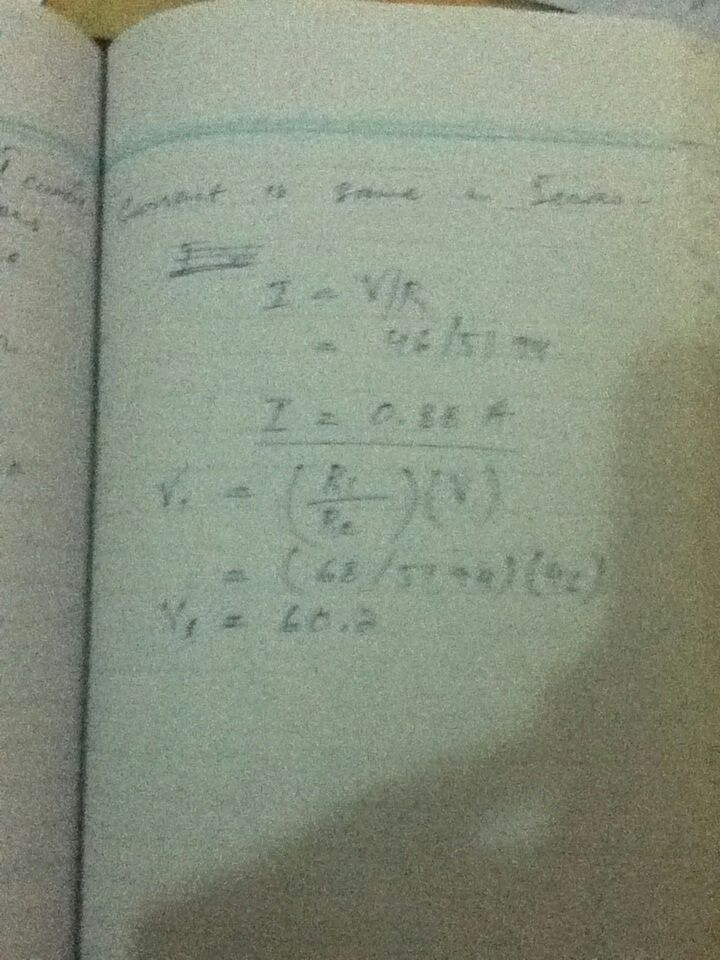 Current is same in Series.
I = V/R
= 46/51.94
I = 0.88 A
V₁ = (R₁/Rₑ)(V)
= (68/51.94)(46)
V₁ = 60.2